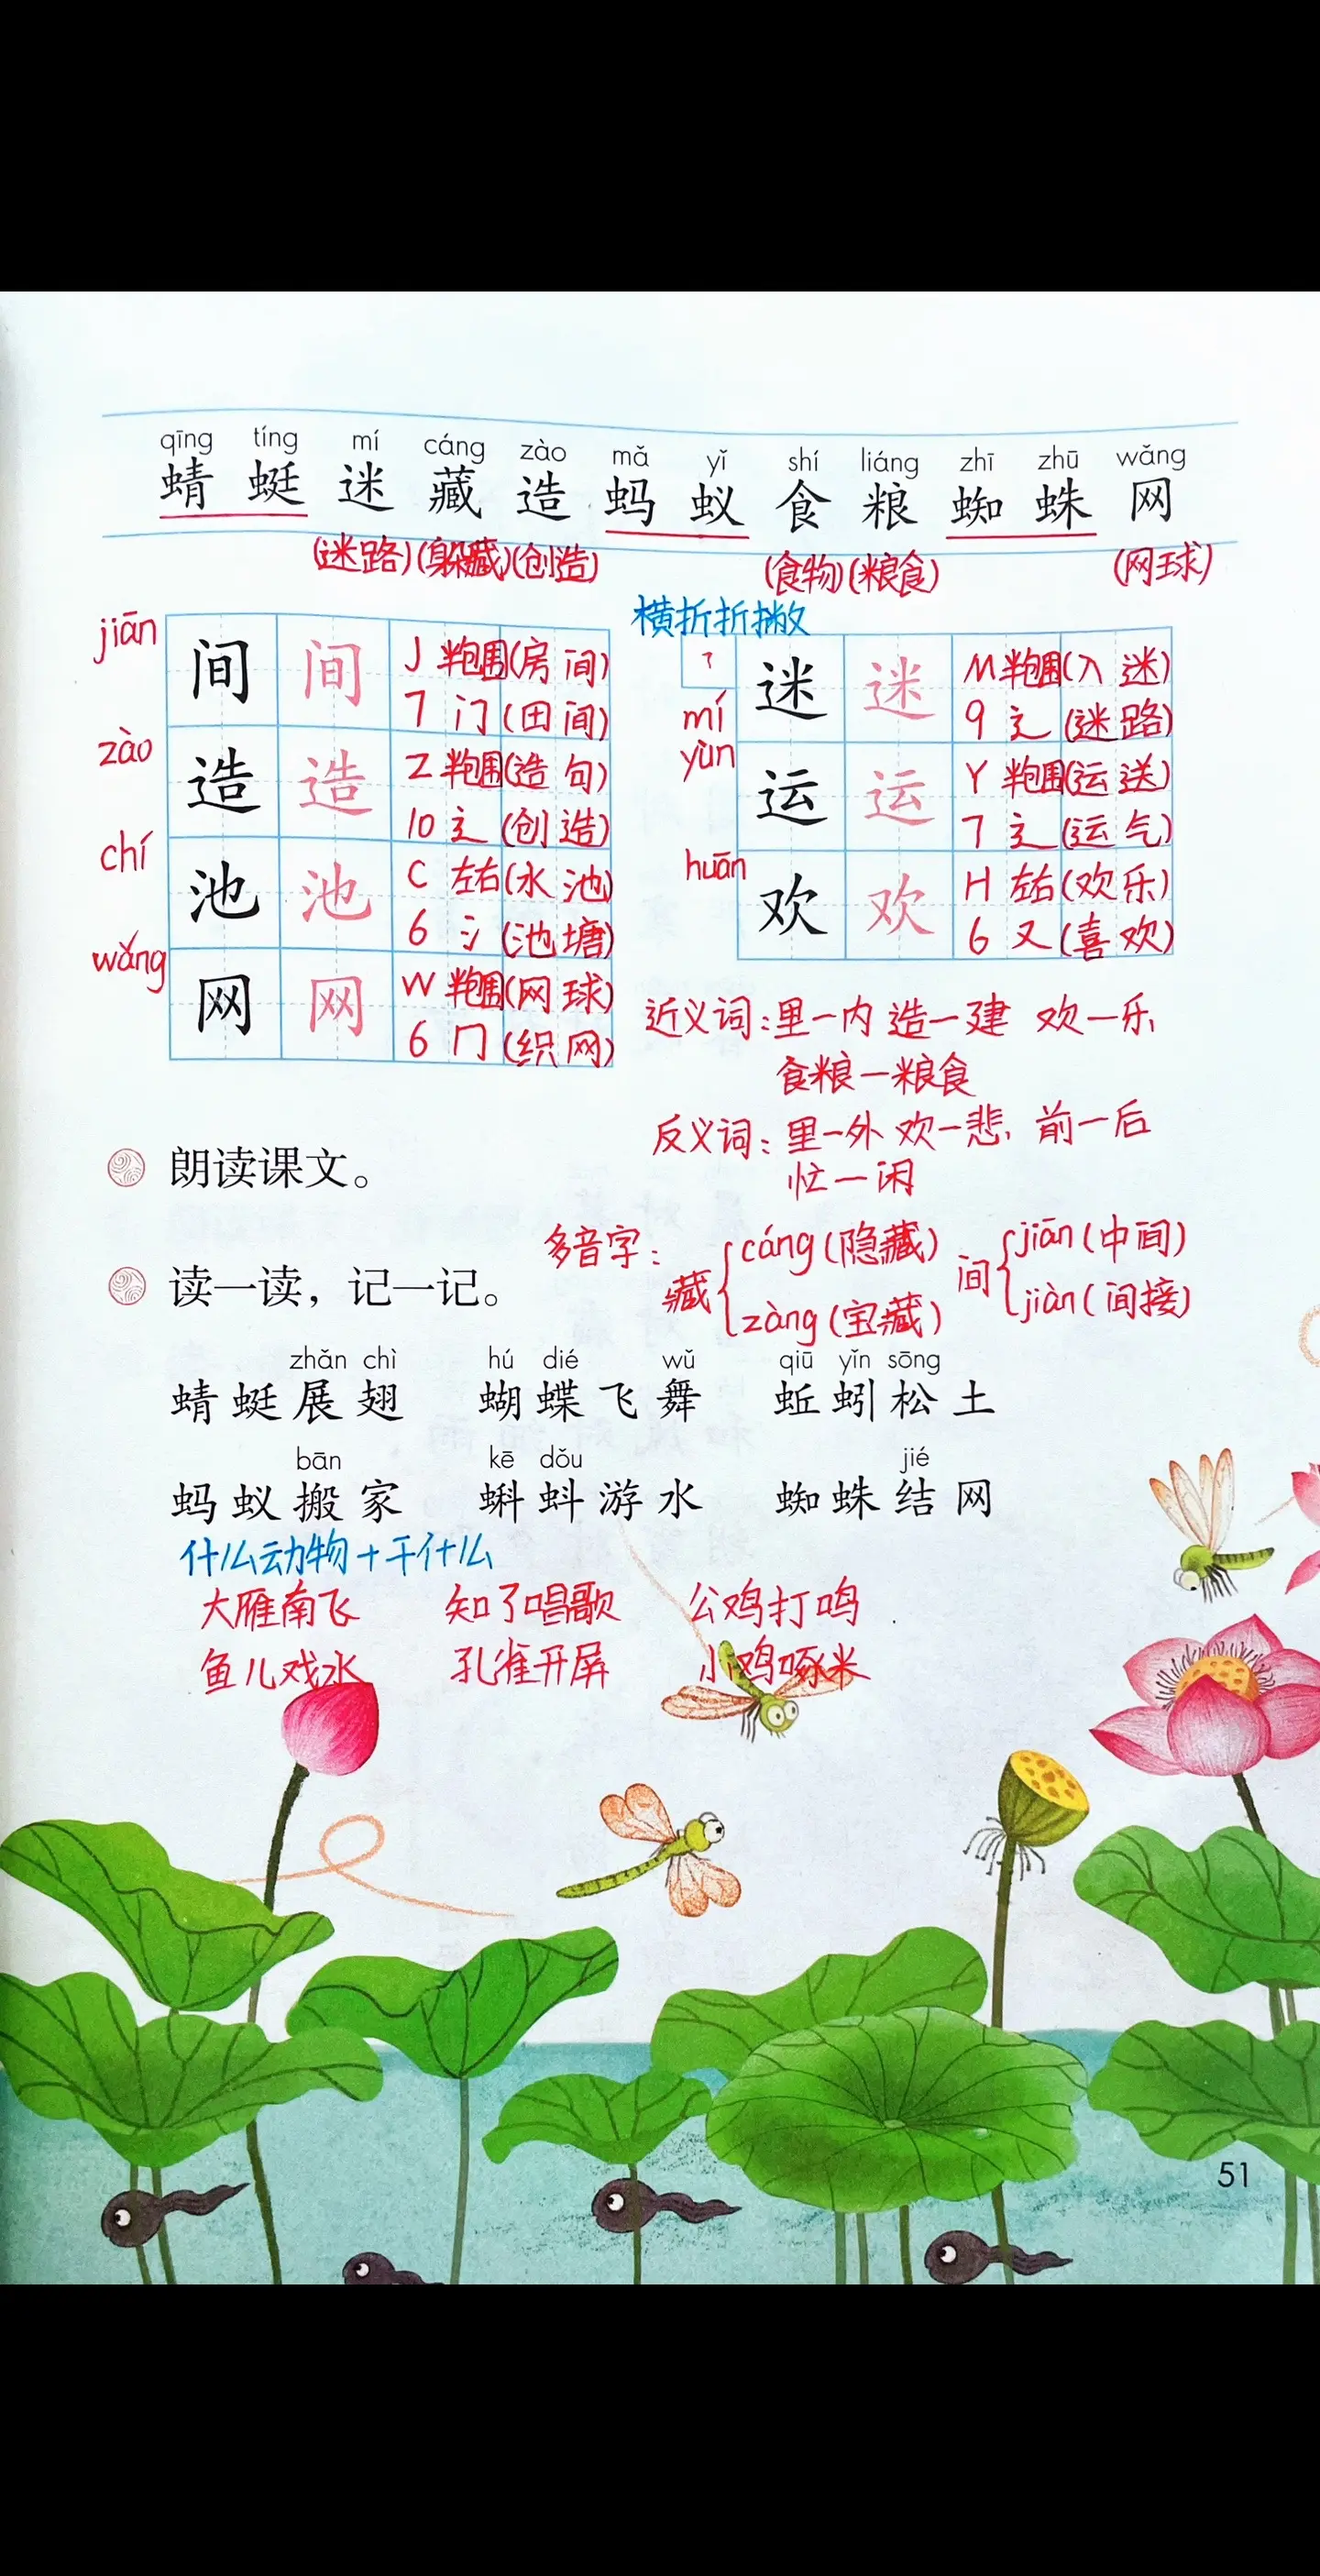 qīng tíng mí cáng zào mǎ yǐ shí liáng zhī zhū wǎng
蜻 蜓 迷 藏 造 蚂 蚁 食 粮 蜘 蛛 网
(迷路)(躲藏)(创造) (食物)(粮食) (网球)
横折折撇
jiān 间 间 J 半包围(房间)
7 门 (田间)
zào 造 造 Z 半包围(造句)
10 辶 (创造)
chí 池 池 C 左右(水池)
6 氵 (池塘)
wǎng 网 网 W 半包围(网球)
6 冂 (织网)
mí 迷 迷 M 半包围(入迷)
9 辶 (迷路)
yùn 运 运 Y 半包围(运送)
7 辶 (运气)
huān 欢 欢 H 左右(欢乐)
6 又 (喜欢)
近义词：里—内 造—建 欢—乐
食粮—粮食
反义词：里—外 欢—悲 前—后
忙—闲
朗读课文。
多音字：藏 cáng(隐藏) zàng(宝藏) 间 jiān(中间) jiàn(间接)
读一读，记一记。
zhǎn chì hú dié wǔ qiū yǐn sōng
蜻蜓展翅 蝴蝶飞舞 蚯蚓松土
bān kē dǒu jié
蚂蚁搬家 蝌蚪游水 蜘蛛结网
什么动物+干什么
大雁南飞 知了唱歌 公鸡打鸣
鱼儿戏水 孔雀开屏 小鸡啄米
51